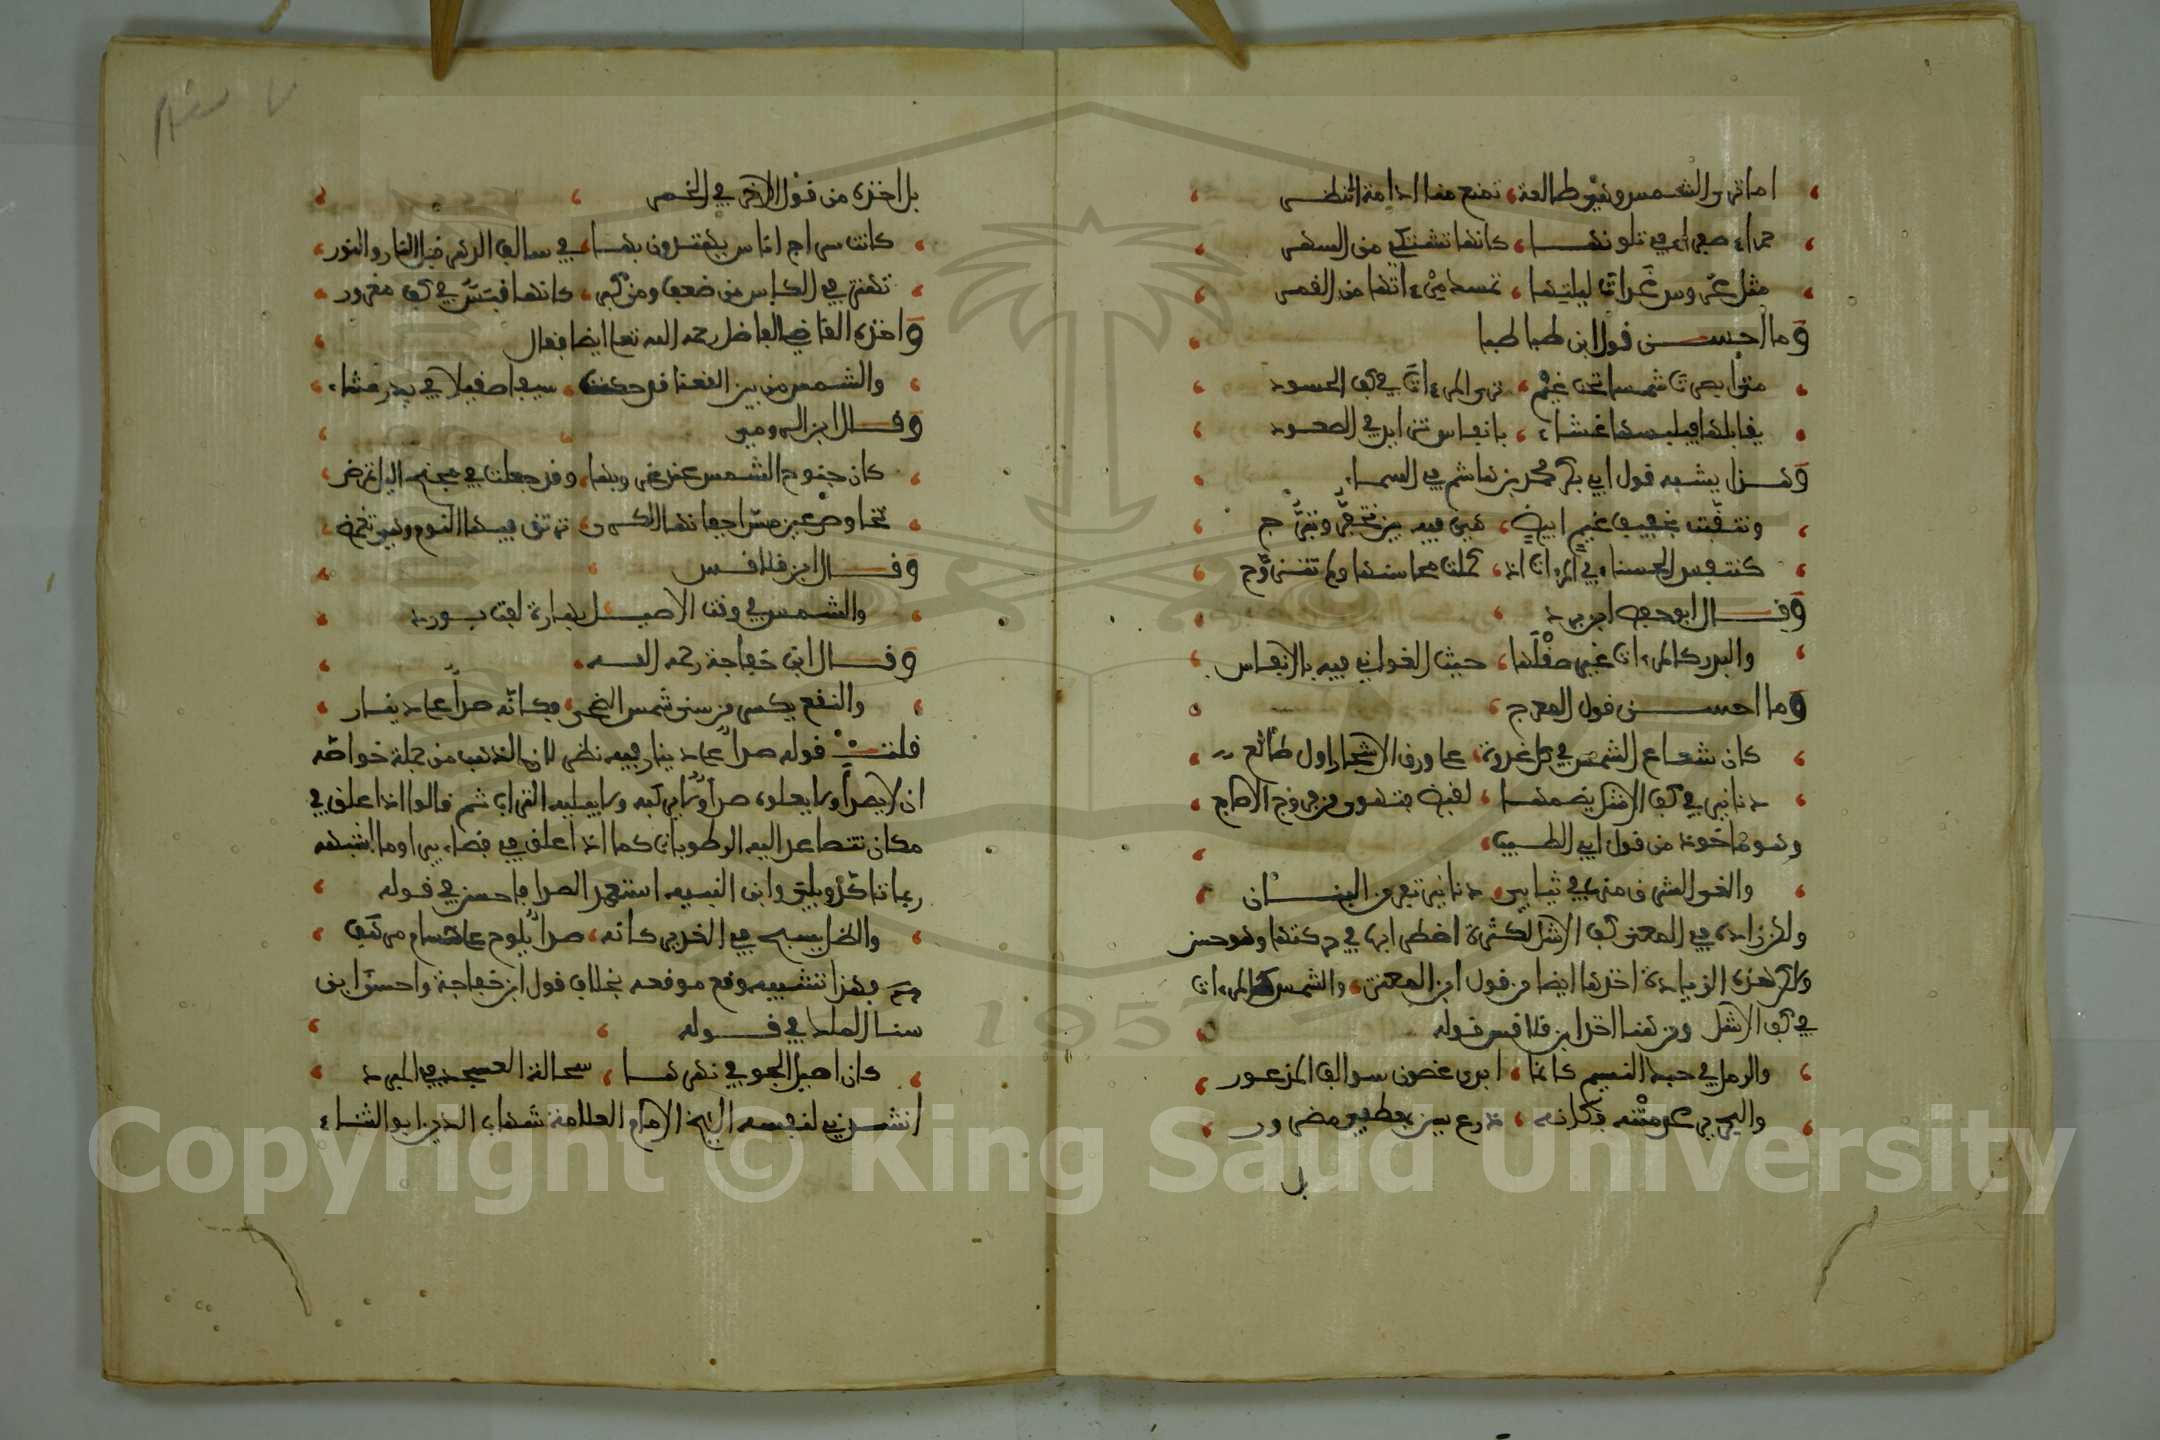 اما ترى الشمس وهي طالعة، تمنع منا ادامة النظر
حمراء صفراء في تلونها، كانها تشتكي من السهر
مثل عروس غداة ليلتها، تمسك مرءاتها من القمر
وما احسن قول ابن طباطبا
متى ابصرت شمسا تحت غيم، ترى المرءاة في كف الحسود
يقابلها فيلبسها غشاء، بانفاس تزايد في الصعود
وهذا يشبه قول ابي بكر محمد بن هاشم في السماء
وتنقبت بخفيف غيم ابيض، هي فيه بين تخفر وتبرج
كتنفس الحسناء في المرءاة اذ، كملت محاسنها ولم تتزوج
وقال ابو حفص ابن برد
والبدر كالمرءاة غير صقلها، عبث الغواني فيه بالانفاس
وما احسن قول المعوج
كان شعاع الشمس في كل غدوة، على ورق الاشجار اول طالع
دنانير في كف الاشل يضمها، لقبض فتهوي من فروج الاصابع
وهو ماخوذ من قول ابي الطيب
والقى الشرق منها في ثيابي، دنانير تفر من البنان
ولكن زاده في المعنى كف الاشل لكثرة اضطرابها في حركتها وهو حسن
ولكن هذه الزيادة اخذها ايضا من قول ابن المعتز، والشمس كالمرءاة
في كف الاشل ومن هنا اخذ ابن قلاقس قوله
والرمل في حبك النسيم كانما، ابدى غضون سوالف المذعور
والبحر يرعد متنه فكانه، درع بسن بعطفي مقرور
بل
بل اخذه من قول الاخر في الخمر
كانت سراج اناس يهتدون بها، في سالف الدهر قبل النار والنور
تهتز في الكاس من ضعف ومن كبر، كانها قبس في كف مقرور
واخذه القاضي الفاضل رحمه الله تعالى ايضا فقال
والشمس من بين القنا قد حكت، سيفا صقيلا في يد رعشاء
وقال ابن الرومي
كان جنوح الشمس عند غروبها، وقد جعلت في مجنح الليل تمرض
تخاوص عين مس اجفانها الكرى، ترنق فيها النوم وهي تغمض
وقال ابن قلاقس
والشمس في وقت الاصيل بهارة لفت بورد
وقال ابن خفاجة رحمه الله
والنقع يكسر من سنى شمس الضحى، فكانه صدأ على دينار
قلت قوله صدأ على دينار فيه نظر لان الذهب من جملة خواصه
ان لا يصدأ ولا يعلوه صدأ ولا يبليه التراب ثم قالوا اذا علق في
مكان تتصاعد اليه الرطوبات كما اذا علق في فضاء بير او ما اشبهه
ربما تاكل وبلي وابن النبيه استعمل الصدا فاحسن في قوله
والظل يسبح في الغدير كانه، صدأ يلوح على حسام مرهف
فهذا تشبيه وقع موقعه بخلاف قول ابن خفاجة واحسن ابن
سنا الملك في قوله
كان اصيل الجو في نهرها، سحالة العسجد في المبرد
انشدني لنفسه الشيخ الامام العلامة شهاب الدين ابو الثناء
Copyright © King Saud University
1957